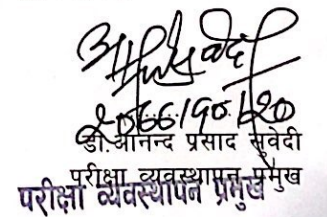 २०६६।१०।२०
डा.आनन्द प्रसाद सुवेदी
परीक्षा व्यवस्थापन प्रमुख
परीक्षा व्यवस्थापन प्रमुख